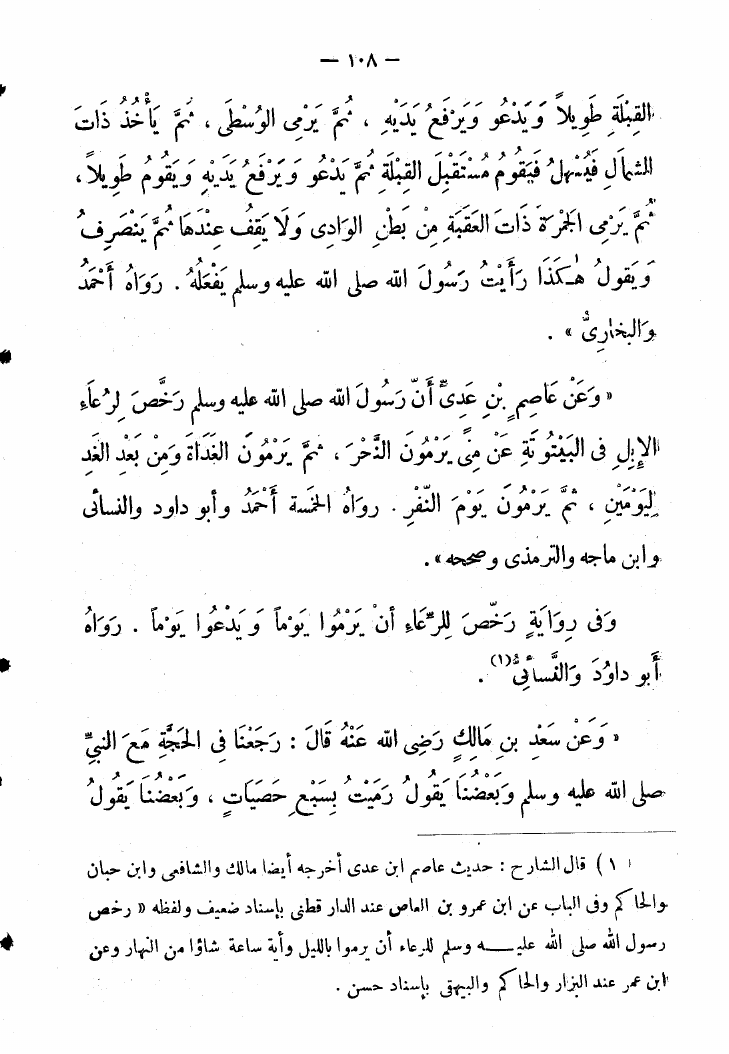 — ١٠٨ —
القِبْلَةِ طَوِيلاً وَيَدْعُو وَيَرْفَعُ يَدَيْهِ ، ثُمَّ يَرْمِى الوُسْطَى ، ثُمَّ يَأْخُذُ ذَاتَ
الشِّمَالِ فَيُسْهِلُ فَيَقُومُ مُسْتَقْبِلَ القِبْلَةِ ثُمَّ يَدْعُو وَيَرْفَعُ يَدَيْهِ وَيَقُومُ طَوِيلاً ،
ثُمَّ يَرْمِى الجَمْرَةَ ذَاتَ العَقَبَةِ مِنْ بَطْنِ الوَادِى وَلَا يَقِفُ عِنْدَهَا ثُمَّ يَنْصَرِفُ
وَيَقُولُ هٰكَذَا رَأَيْتُ رَسُولَ الله صلى الله عليه وسلم يَفْعَلُهُ . رَوَاهُ أَحْمَدُ
وَالبخارِىُّ » .
« وَعَنْ عَاصِمِ بْنِ عَدِىٍّ أَنَّ رَسُولَ الله صلى الله عليه وسلم رَخَّصَ لِرُعَاءِ
الإِبِلِ فى البَيْتُوتَةِ عَنْ مِنًى يَرْمُونَ النَّحْرَ ، ثُمَّ يَرْمُونَ الغَدَاةَ وَمِنْ بَعْدِ الغَدِ
لِيَوْمَيْنِ ، ثُمَّ يَرْمُونَ يَوْمَ النَّفْرِ . رواهُ الخمسة أَحْمَدُ وأبو داود والنسائى
وابن ماجه والترمذى وصححه » .
وَفى رِوَايَةٍ رَخَّصَ لِلرِّعَاءِ أَنْ يَرْمُوا يَوْماً وَيَدْعُوا يَوْماً . رَوَاهُ
أَبو داوُدَ وَالنَّسائِىُّ (١) .
« وَعَنْ سَعْدِ بنِ مَالِكٍ رَضِى الله عَنْهُ قَالَ : رَجَعْنَا فى الحَجَّةِ مَعَ النبىِّ
صلى الله عليه وسلم وَبَعْضُنَا يَقُولُ رَمَيْتُ بِسَبْعِ حَصَيَاتٍ ، وَبَعْضُنَا يَقُولُ
( ١ ) قال الشارح : حديث عاصم ابن عدى أخرجه أيضا مالك والشافعى وابن حبان
والحاكم وفى الباب عن ابن عمرو بن العاص عند الدار قطنى بإسناد ضعيف ولفظه « رخص
رسول الله صلى الله عليـــه وسلم للرعاء أن يرموا بالليل وأية ساعة شاؤا من النهار وعن
ابن عمر عند البزار والحاكم والبيهقى بإسناد حسن .